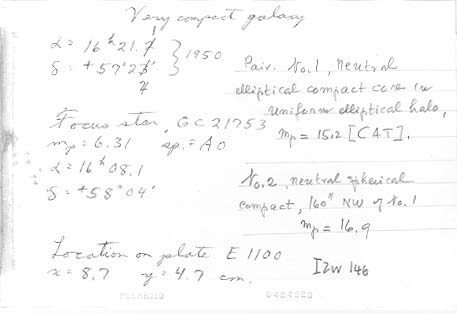 Very compact galaxy
α = 16h 21.7
δ = +57°23' } 1950
7
Pair. No. 1, neutral
elliptical compact core in
uniform elliptical halo,
mp = 15.2 [CAT].
Focus star, GC 21753
mp = 6.31 sp. = A0
α = 16h 08.1
δ = +58°04'
No. 2, neutral spherical
compact, 160" NW of No. 1
mp = 16.9
Location on plate E 1100
x = 8.7 y = 4.7 cm.
IZw 146
POLAROID